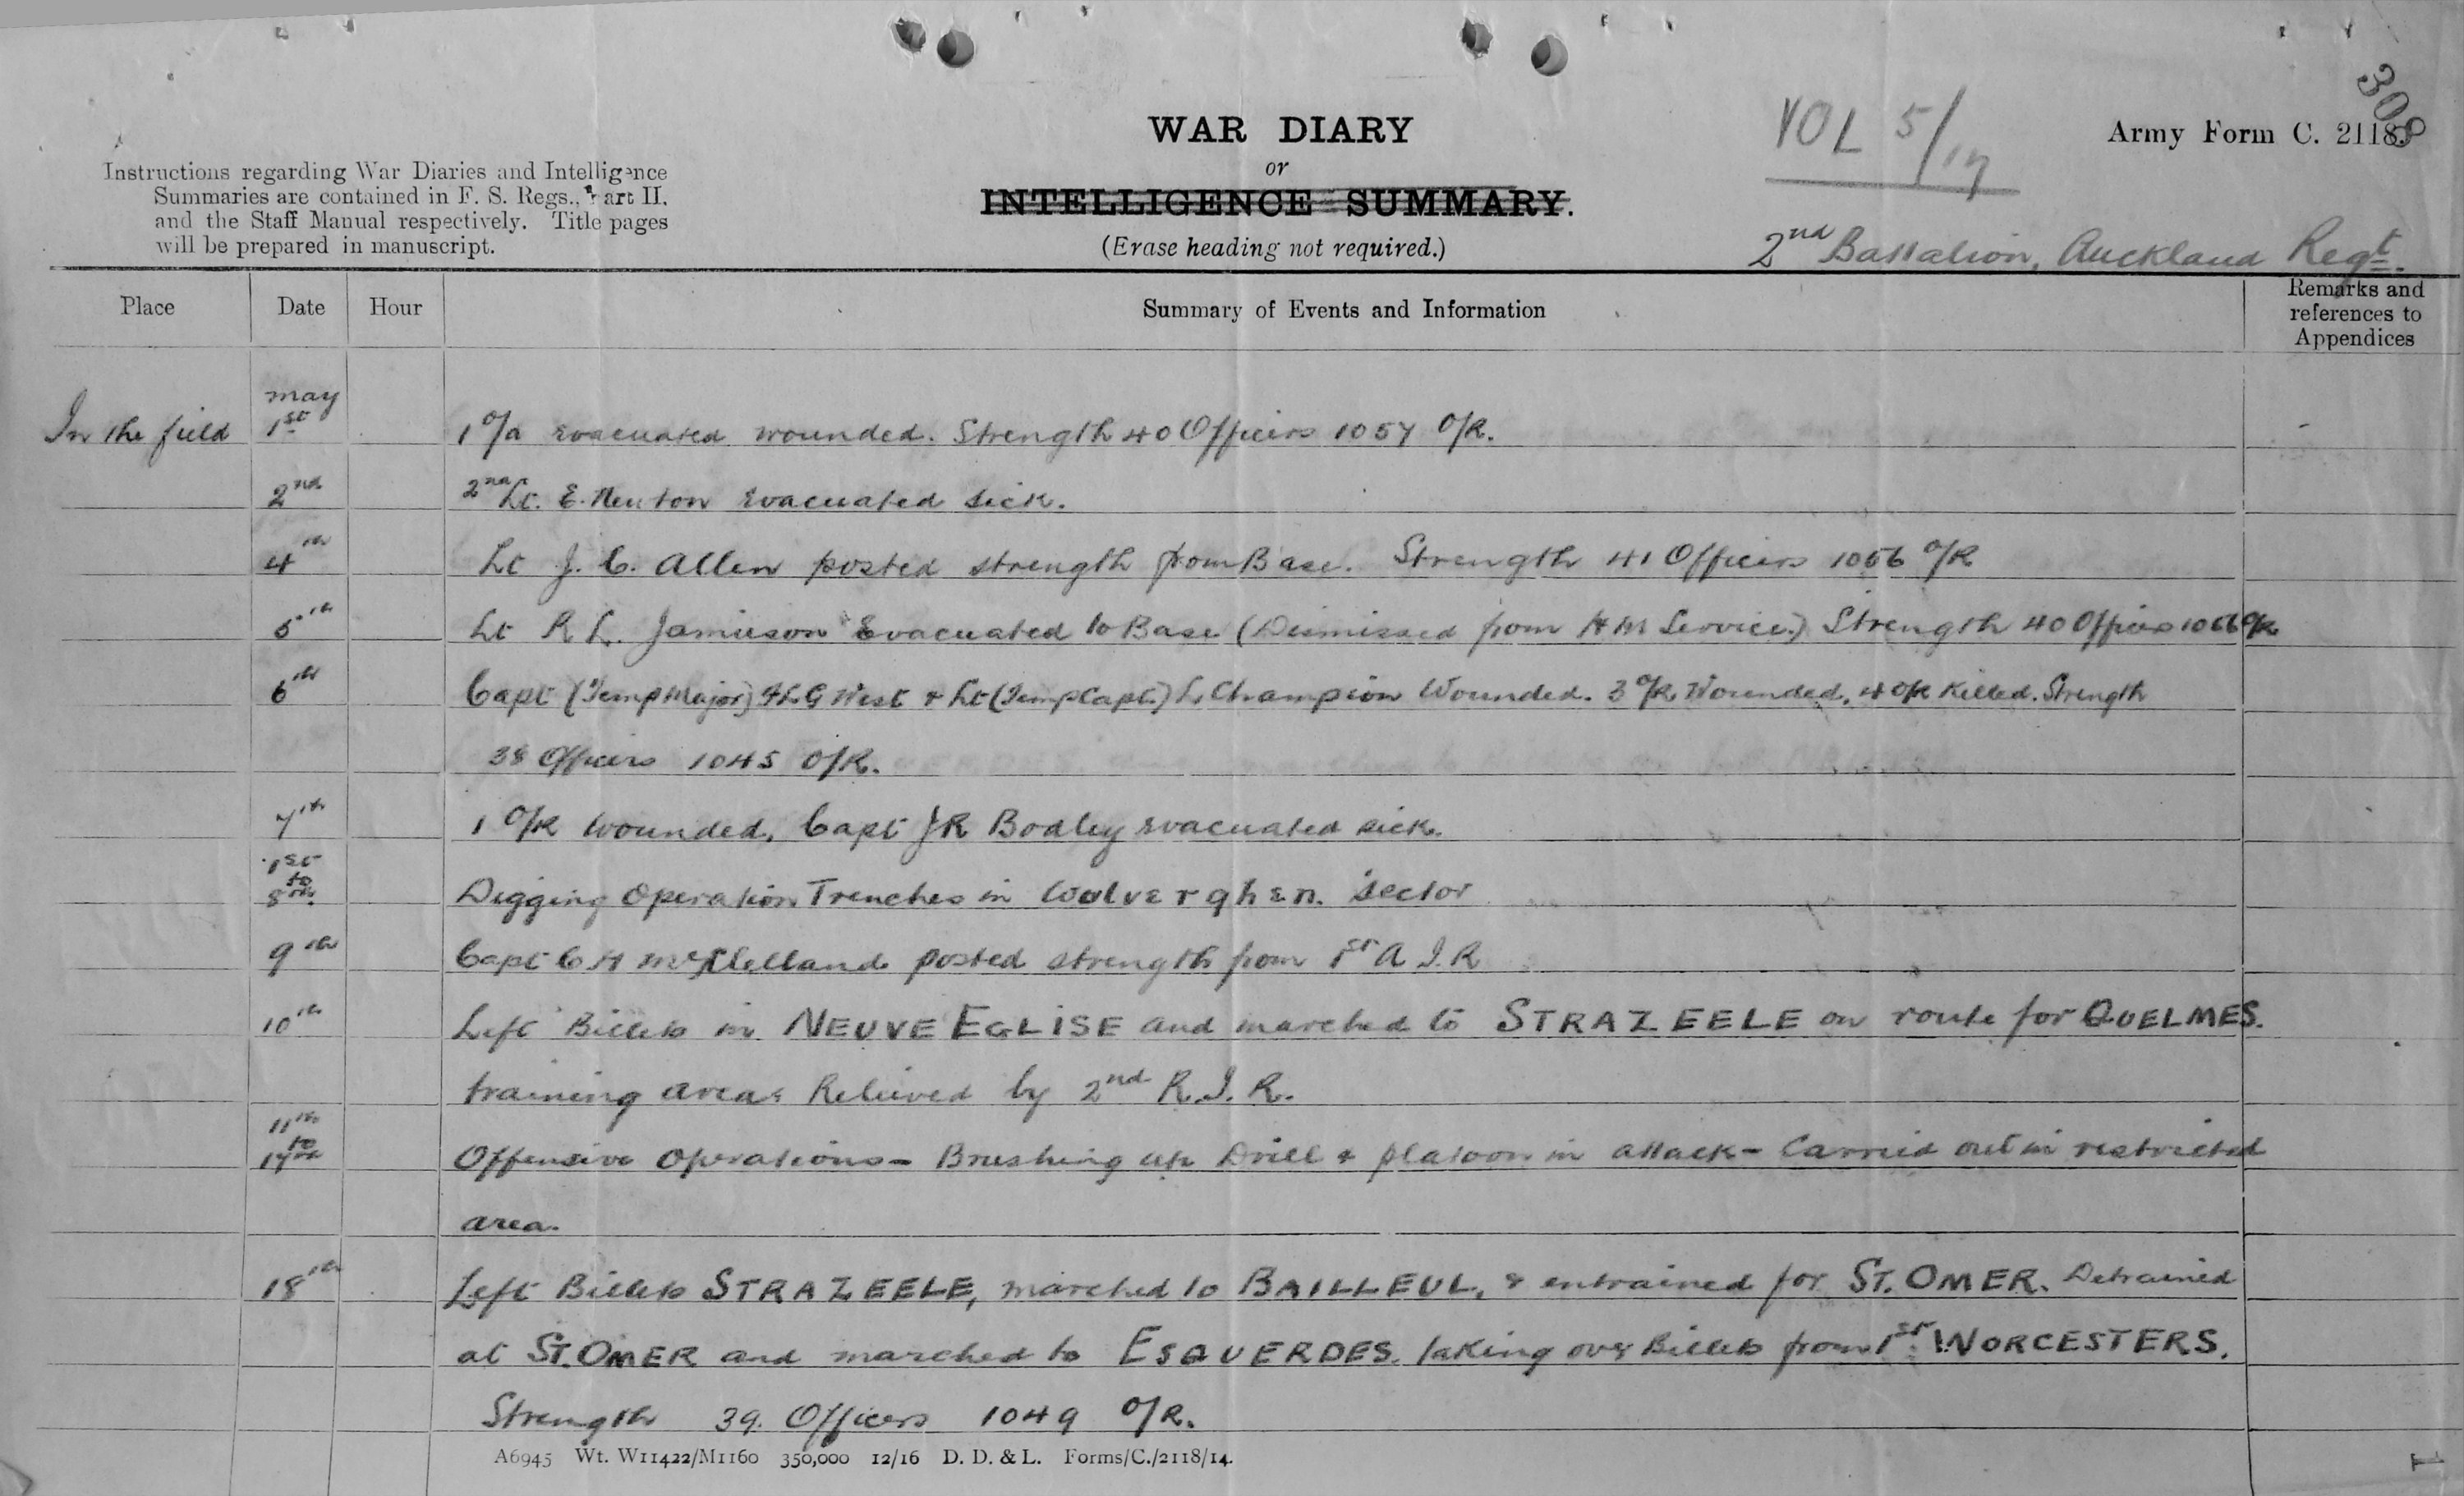 308
WAR DIARY
or
INTELLIGENCE SUMMARY.
(Erase heading not required.)
VOL 5/17
Army Form C. 2118.
2nd Battalion, Auckland Regt.
Instructions regarding War Diaries and Intelligence
Summaries are contained in F. S. Regs., Part II.
and the Staff Manual respectively. Title pages
will be prepared in manuscript.
Place Date Hour Summary of Events and Information Remarks and references to Appendices
In the field May 1st 1 O/R evacuated wounded. Strength 40 Officers 1057 O/R.
2nd 2nd Lt. E. Newton evacuated sick.
4th Lt J. C. Allen posted strength from Base. Strength 41 Officers 1056 O/R
5th Lt R L. Jamieson Evacuated to Base (Dismissed from H M Service.) Strength 40 Officers 1056 O/R
6th Capt (Temp Major) H L G West & Lt (Temp Capt.) L Champion Wounded. 3 O/R Wounded, 4 O/R Killed. Strength
38 Officers 1045 O/R.
7th 1 O/R wounded, Capt J R Bodley evacuated sick.
1st to 8th Digging Operation Trenches in Wolverghen. Sector
9th Capt C H McClelland posted strength from 1st A I. R
10th Left Billets in NEUVE EGLISE and marched to STRAZEELE on route for QUELMES.
training area. Relieved by 2nd R. I. R.
11th to 17th Offensive Operations - Brushing up Drill & platoon in attack - Carried out in restricted
area.
18th Left Billets STRAZEELE, marched to BAILLEUL, & entrained for ST. OMER. Detrained
at ST. OMER and marched to ESQUERDES. taking over Billets from 1st WORCESTERS.
Strength 39. Officers 1049 O/R.
A6945 Wt. W11422/M1160 350,000 12/16 D. D. & L. Forms/C./2118/14.